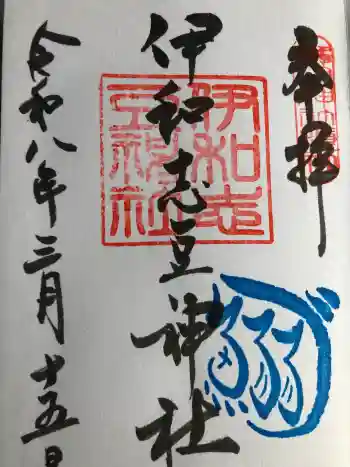 奉拝
伊和志豆神社
伊和志豆神社
令和八年三月十五日